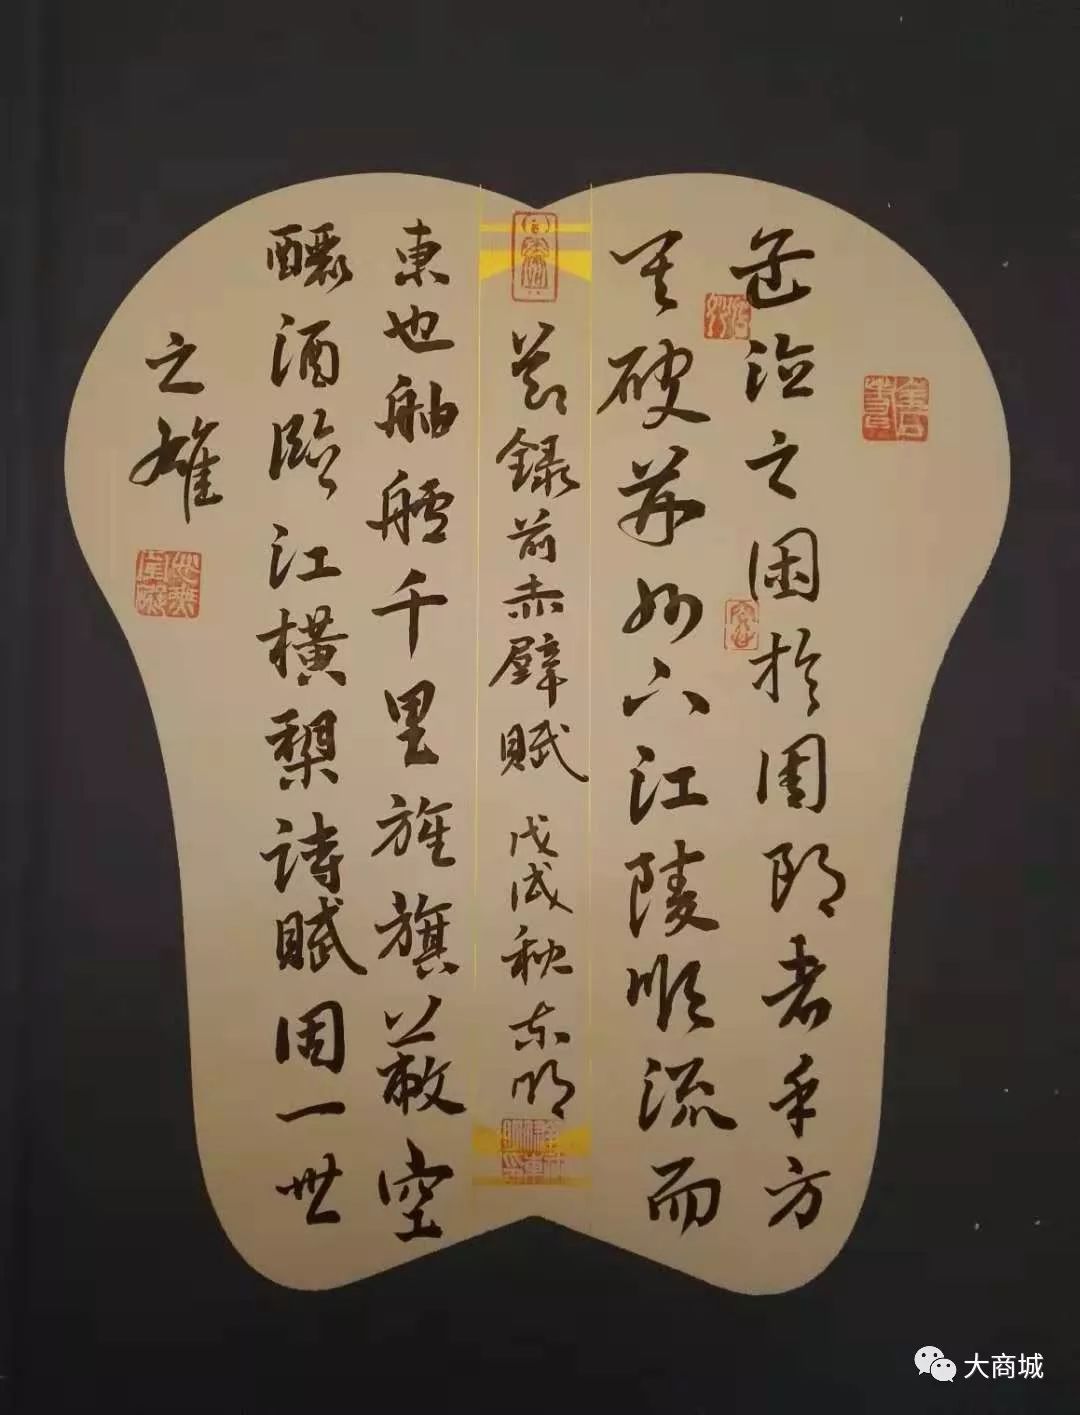 孟德之困於周郎者乎方
其破荊州下江陵順流而
節錄前赤壁賦 戊戌秋東明
東也舳艫千里旌旗蔽空
釃酒臨江橫槊詩賦固一世
之雄
大商城